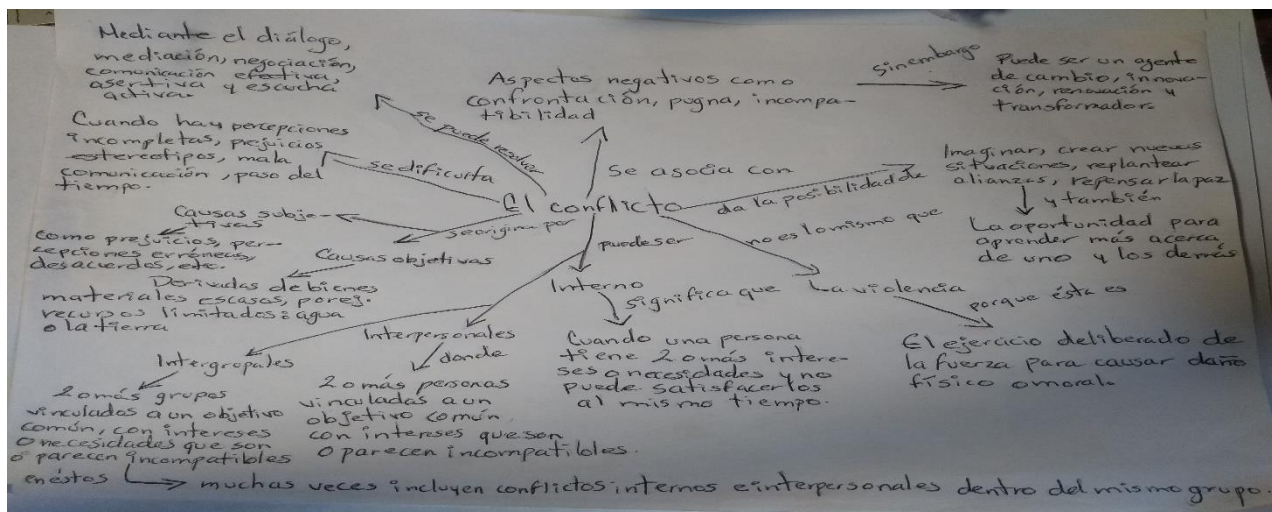 Mediante el diálogo,
mediación, negociación,
comunicación efectiva,
asertiva y escucha
activa.
Cuando hay percepciones
incompletas, prejuicios
estereotipos, mala
comunicación, paso del
tiempo.
se puede resolver
se dificulta
Aspectos negativos como
confrontación, pugna, incompa-
tibilidad
sinembargo
Puede ser un agente
de cambio, innova-
ción, renovación y
transformador.
Se asocia con
El conflicto
da la posibilidad de
Imaginar, crear nuevas
situaciones, replantear
alianzas, repensar la paz
y también
La oportunidad para
aprender más acerca
de uno y los demás
se origina por
Causas subje-
tivas
como prejuicios, per-
cepciones erróneas,
desacuerdos, etc.
Causas objetivas
Derivadas de bienes
materiales escasos, por ej.
recursos limitados: agua
o la tierra
puede ser
no es lo mismo que
Interno
significa que
Cuando una persona
tiene 2 o más intere-
ses o necesidades y no
puede satisfacerlos
al mismo tiempo.
La violencia
porque ésta es
El ejercicio deliberado de
la fuerza para causar daño
físico o moral.
Interpersonales
donde
2 o más personas
vinculadas a un
objetivo común
con intereses que son
o parecen incompatibles.
Intergrupales
2 o más grupos
vinculados a un objetivo
común, con intereses
o necesidades que son
o parecen incompatibles
en éstos
muchas veces incluyen conflictos internos e interpersonales dentro del mismo grupo.